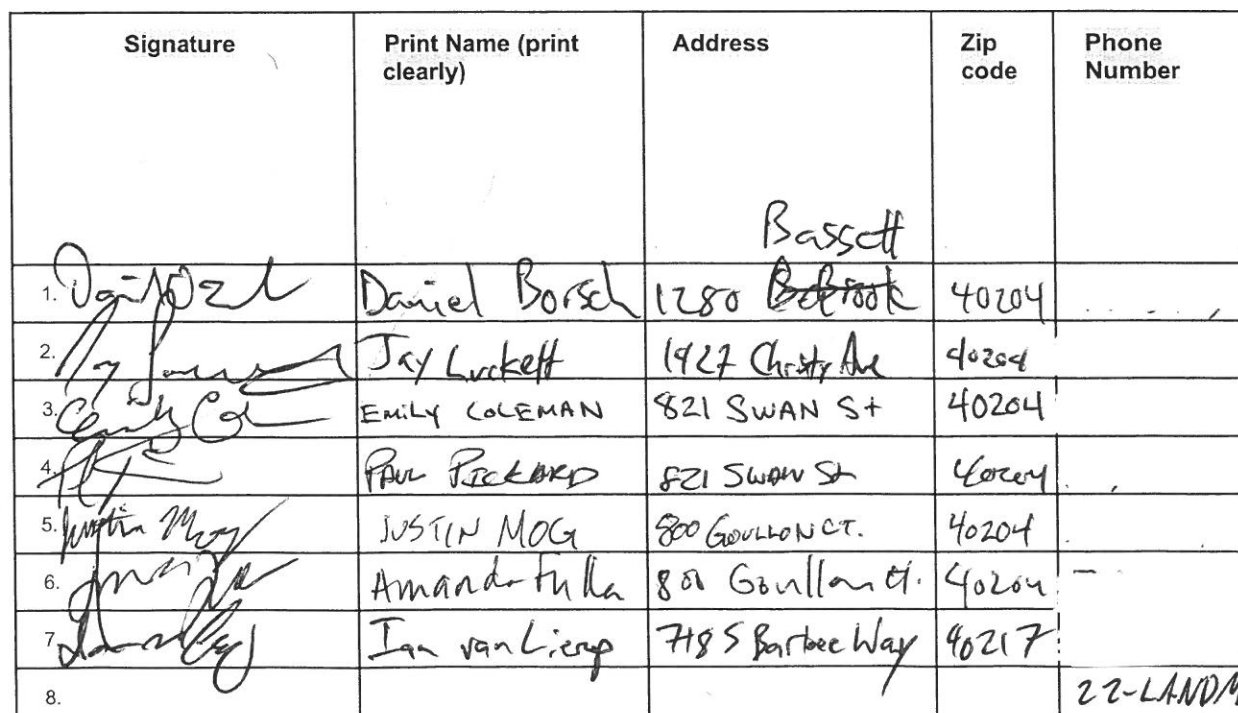 Signature Print Name (print clearly) Address Zip code Phone Number
Bassett
1. Daniel Borsch 1280 40204
2. Jay Luckett 1427 Christy Ave 40204
3. Emily Coleman EMILY COLEMAN 821 SWAN St 40204
4. PAUL PICKARD 821 SWAN St 40204
5. Justin Mog JUSTIN MOG 800 GOULLON CT. 40204
6. Amanda Fulla 800 Goullon Ct. 40204
7. Ian van Lierop 718 S Barbee Way 40217
8. 22-LANDM